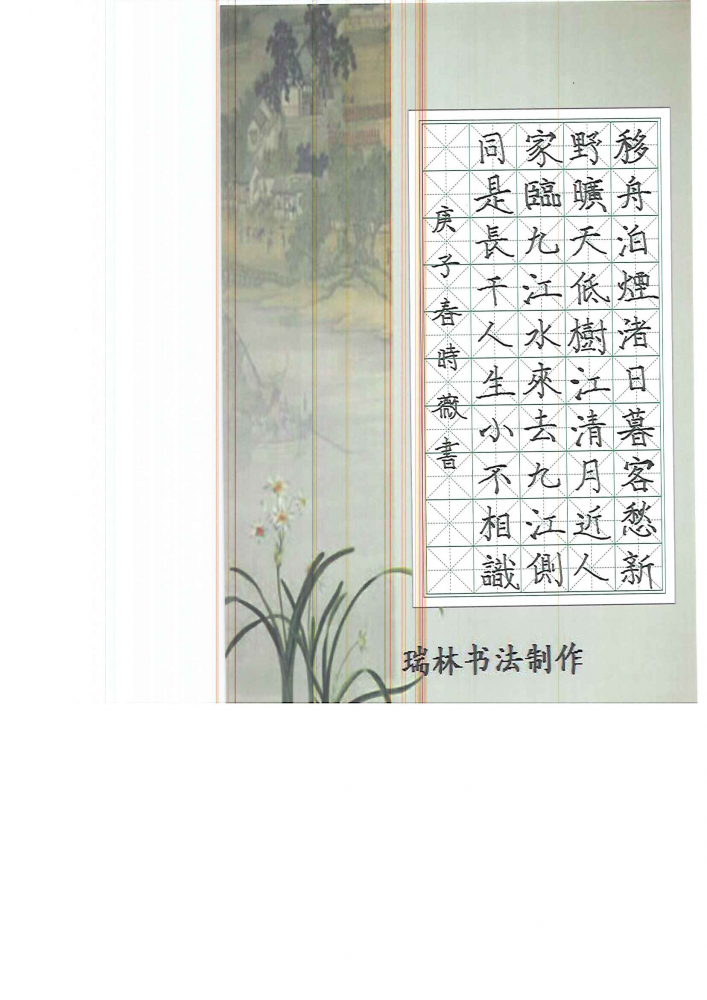 移舟泊煙渚日暮客愁新
野曠天低樹江清月近人
家臨九江水來去九江側
同是長干人生小不相識
庚子春時薇書
瑞林书法制作